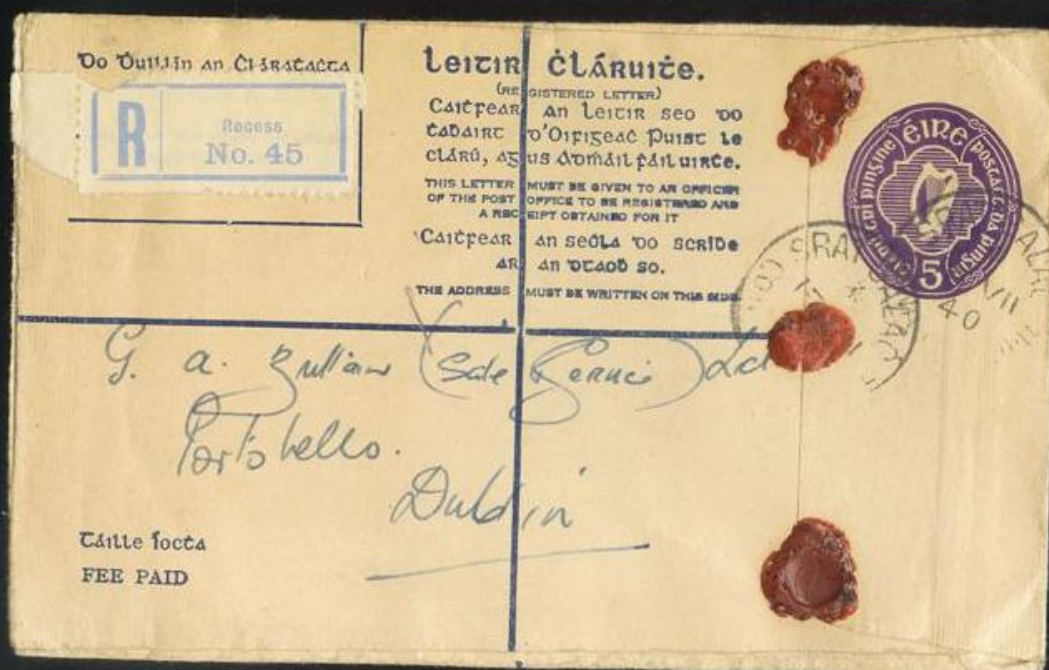 Do Ḋuillín an Ċláraṫaċta
R
Recess
No. 45
Leitir Ċláruiṫe.
(REGISTERED LETTER)
Caitfear an leitir seo do
ṫaḃairt d'Oifigeaċ Puist le
clárú, agus admáil ḟáil uirṫe.
THIS LETTER MUST BE GIVEN TO AN OFFICER
OF THE POST OFFICE TO BE REGISTERED AND
A RECEIPT OBTAINED FOR IT
Caitfear an seóla do scríḃe
ar an dtaoḃ so.
THE ADDRESS MUST BE WRITTEN ON THIS SIDE.
ÉIRE
Postas Dá Pingin
Trí Pingine
5
SRA
40
VII
G. A.
Ltd
Portobello.
Dublin
Táille íocṫa
FEE PAID